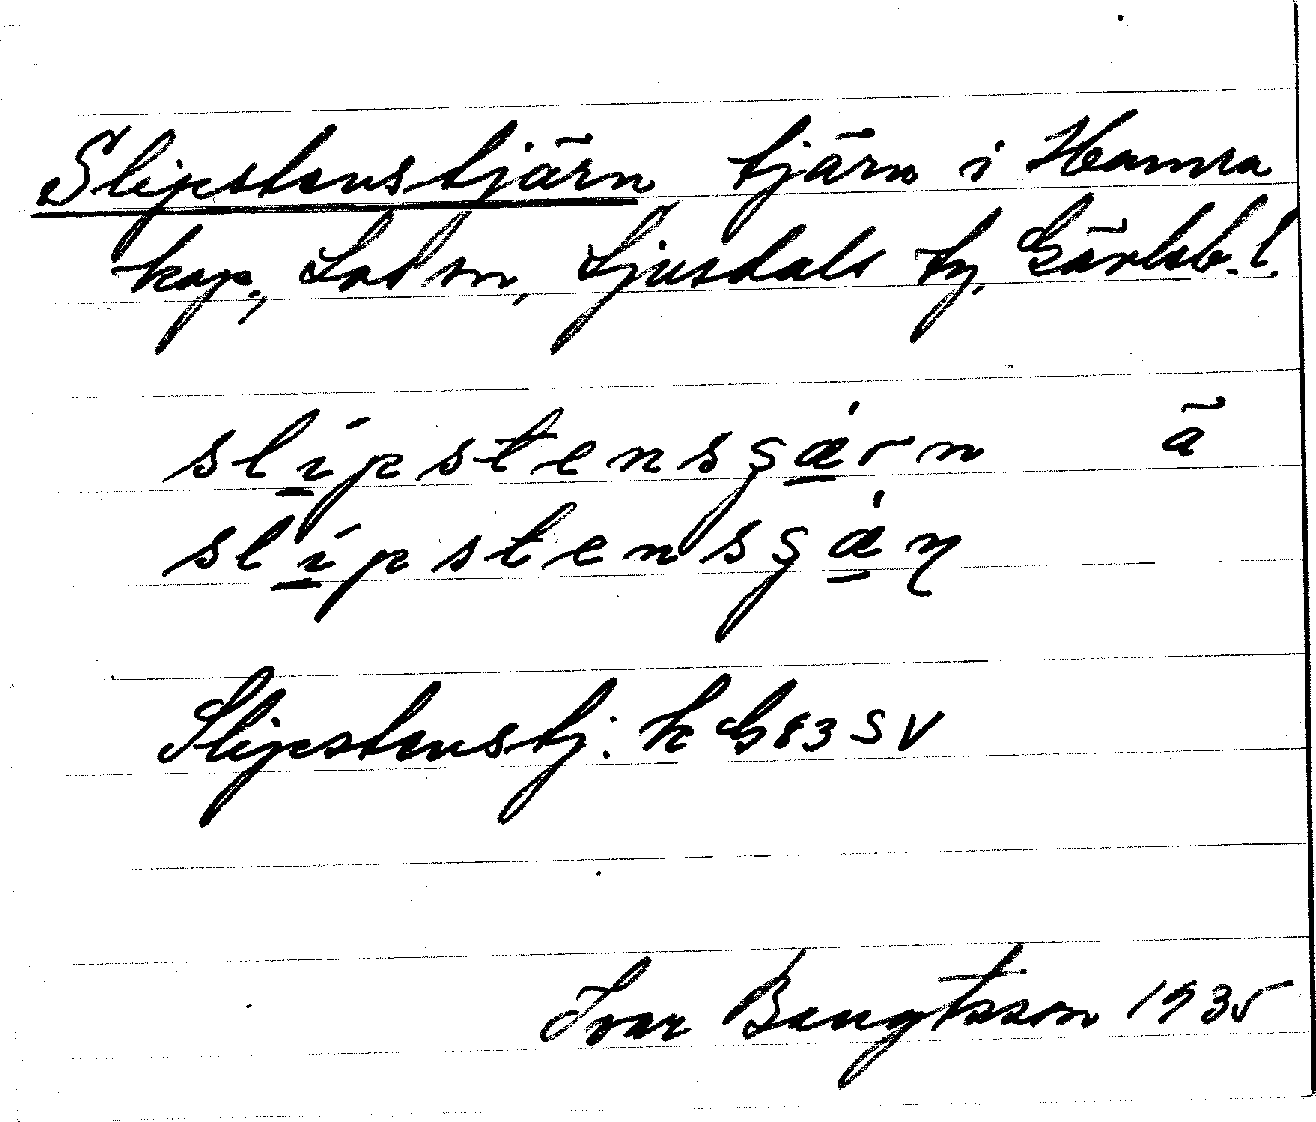 Slipstenstjärn tjärn i Hamra
kap., Los sn, Ljusdals tg, Gävleb. l.
slípstensʂɡærn ä
slípstensʂɡæɳ
Slipstenstj. k G 83 SV
Ivar Bengtsson 1935